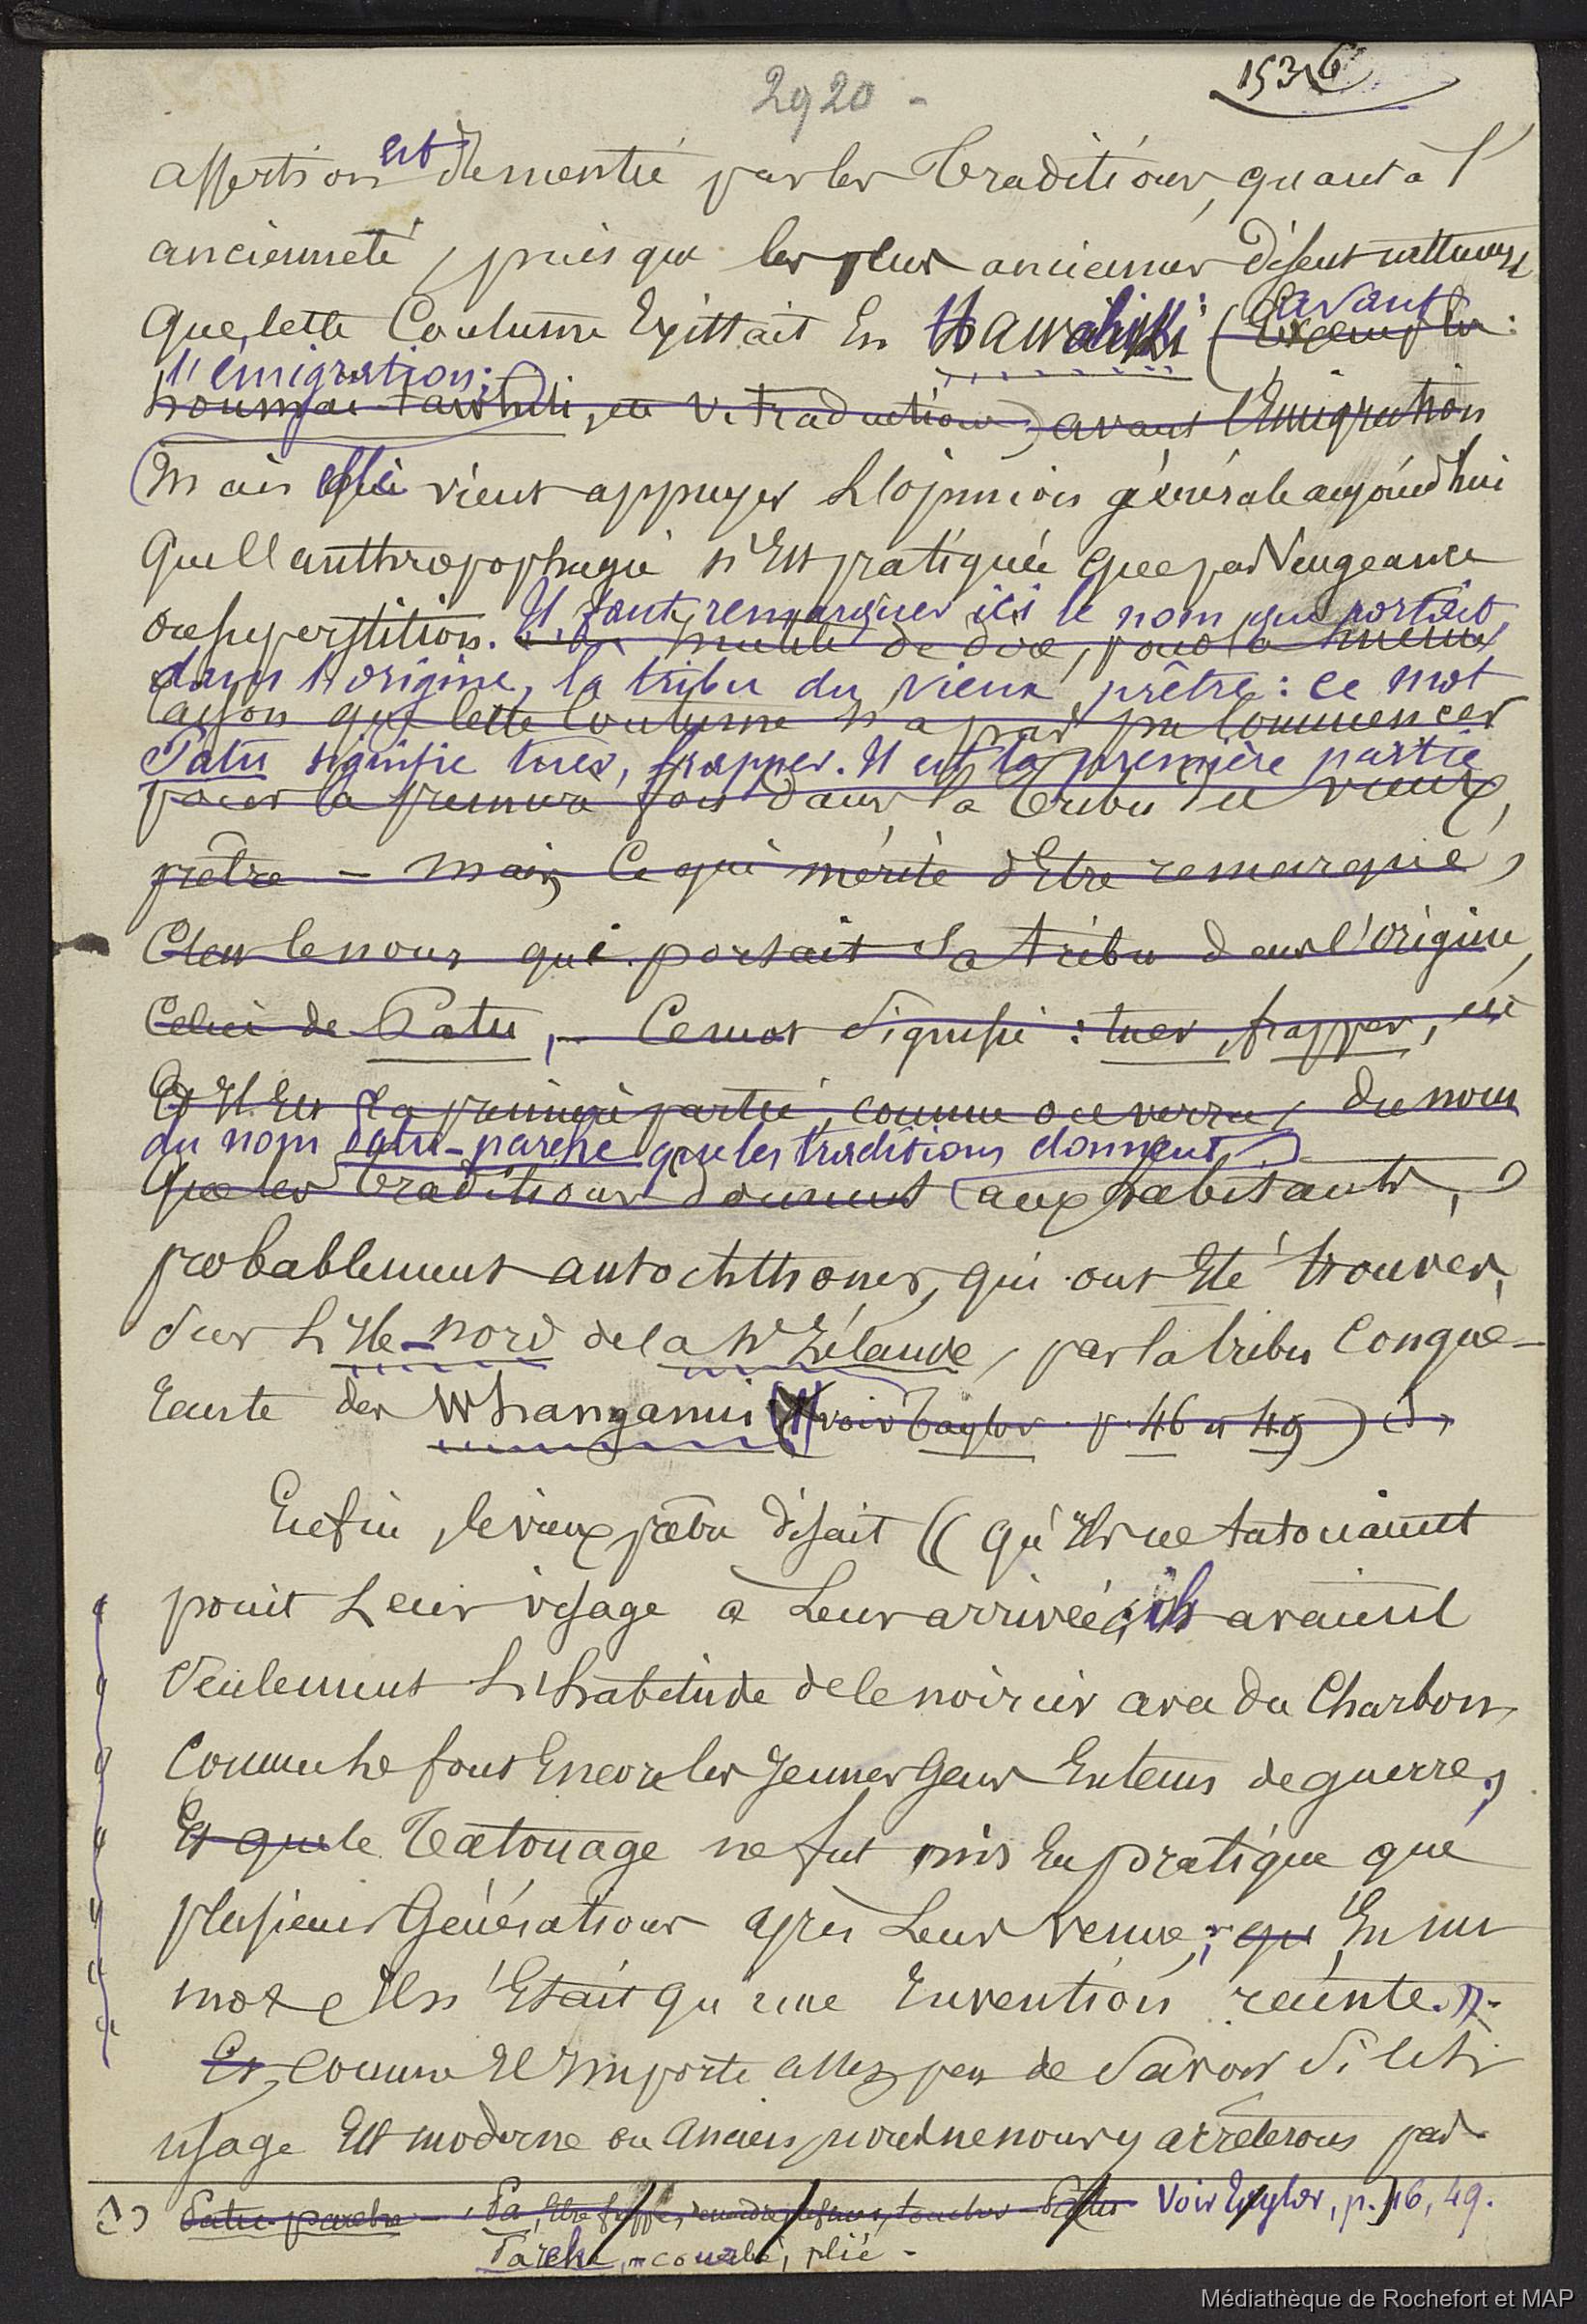 2920 -
1536
assertion est démentie par les traditions, quant à l'
ancienneté, puisque les plus anciennes disent
que cette coutume existait en Hawahiki (Exemples :
avant
l'émigration;
traduction) avant l'émigration
mais elle vient appuyer l'opinion générale aujourd'hui
que l'anthropophagie n'est pratiquée que par vengeance
ou superstition.
Il faut remarquer ici le nom que portait,
inutile de dire, pour la même
dans l'origine, la tribu du vieux prêtre : ce mot
raison que cette coutume n'a pas pu commencer
Patu signifie tuer, frapper. Il est la première partie
pour la première fois dans la tribu du vieux
prêtre - mais ce qui mérite d'être remarqué,
c'est le nom que portait sa tribu dans l'origine,
celui de Patu, - Ce mot signifie : tuer, frapper,
et il est la première partie, comme on verra, du nom
du nom patu-parehe que les traditions donnent
que les traditions donnent aux habitants,
probablement autochthones, qui ont été trouvés,
sur l'île-nord de la Nlle Zélande, par la tribu conqué-
rante des Whanganui (1) (voir Taylor p. 46 et 49)
Enfin, le vieux prêtre disait (( qu'ils ne tatouaient
point leur visage à leur arrivée; ils avaient
seulement l'habitude de le noircir avec du charbon,
comme le font encore les jeunes gens en tems de guerre;
et que le tatouage ne fut mis en pratique que
plusieurs générations après leur venue; que en un
mot ce n'était qu'une invention récente. )).
Et comme il importe assez peu de savoir si cet
usage est moderne ou ancien nous ne nous y arrêterons pas.
(1) Patu-parehe - Pa, être frappé, toucher - Patu Voir Taylor, p. 46, 49.
Parehe, - courbé, plié -
Médiathèque de Rochefort et MAP